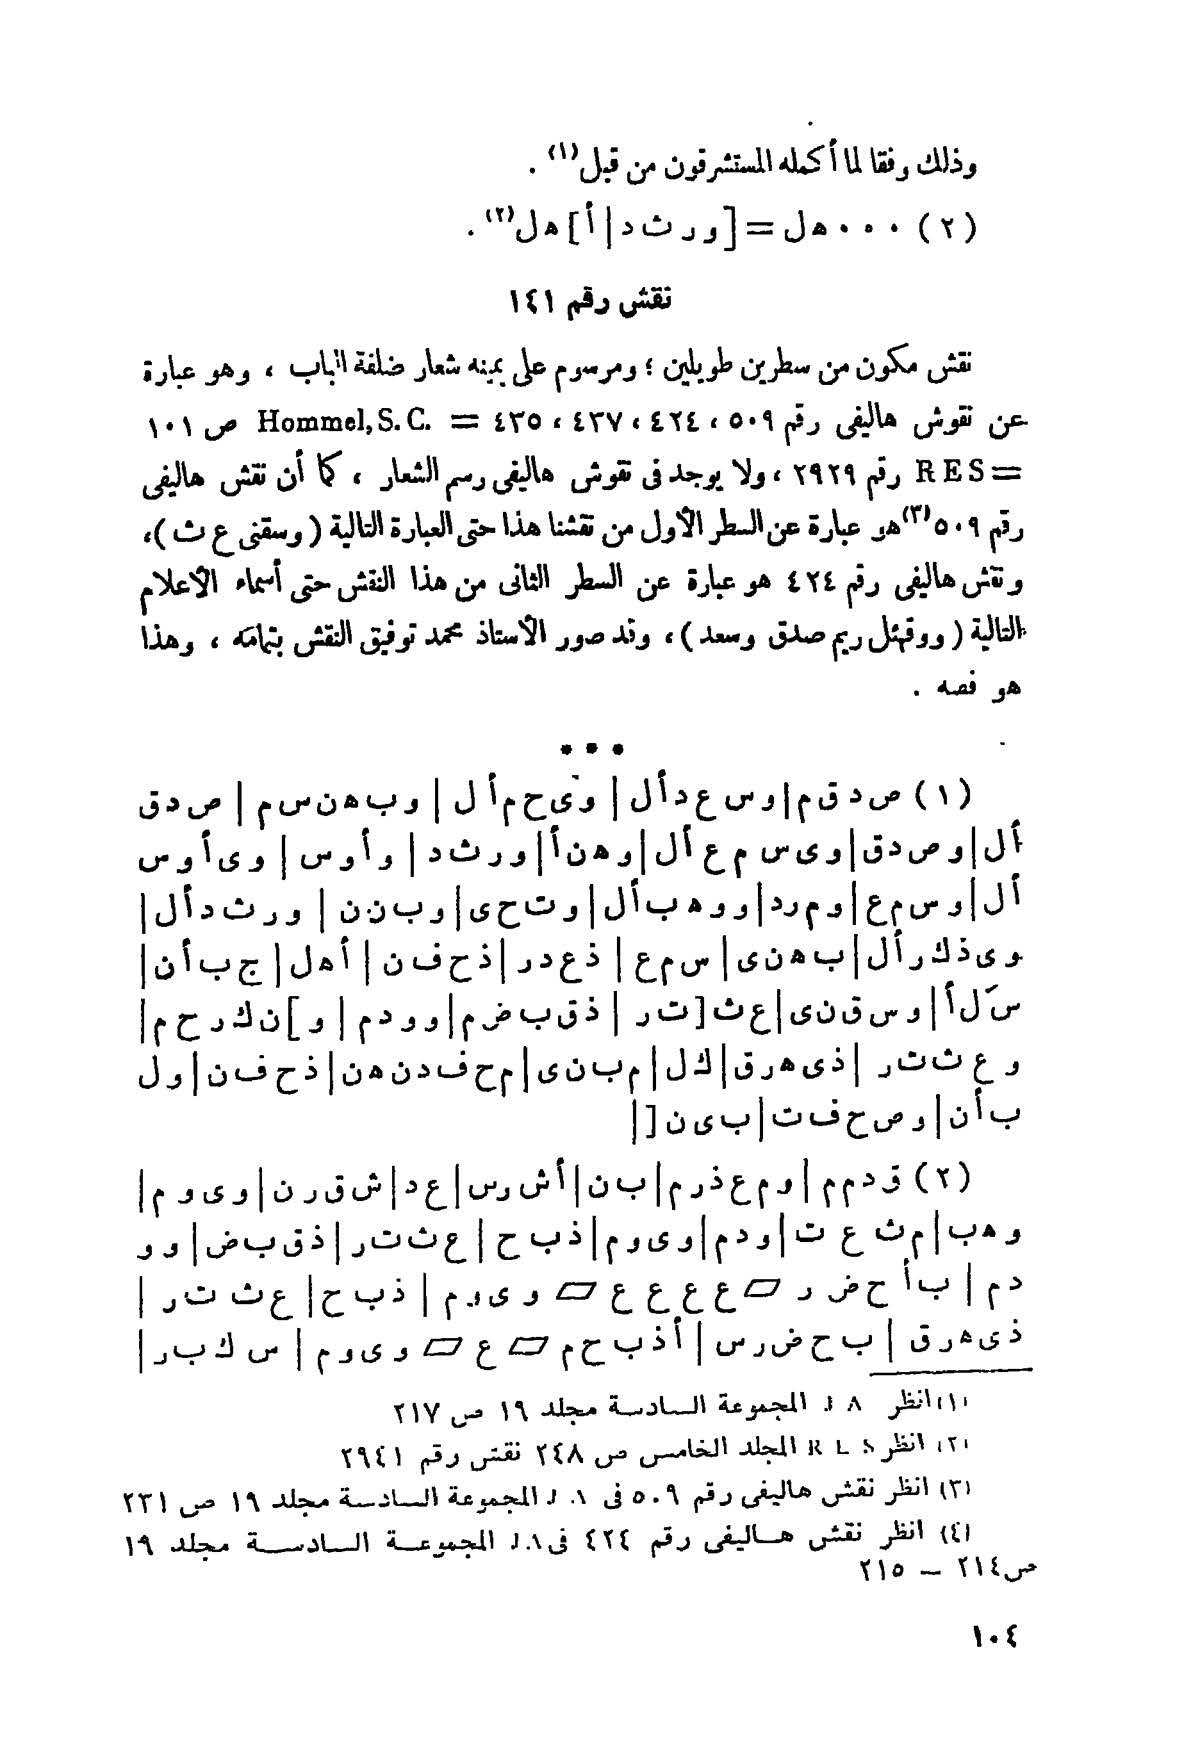 وذلك وفقا لما أكمله المستشرقون من قبل(١) .
(٢) ٠٠٠هل=[ورثد|أ]هل(٢).
نقش رقم ١٤١
نقش مكون من سطرين طويلين ؛ ومرسوم على يمينه شعار ضلفة الباب ، وهو عبارة
عن نقوش هاليفى رقم ٥٠٩ ، ٤٢٤ ، ٤٣٧ ، ٤٣٥ = Hommel, S. C. ص ١٠١
= RES رقم ٢٩٢٩ ، ولا يوجد فى نقوش هاليفى رسم الشعار ، كما أن نقش هاليفى
رقم ٥٠٩(٣) هو عبارة عن السطر الأول من نقشنا هذا حتى العبارة التالية ( وسقنى ع ث ) ،
ونقش هاليفى رقم ٤٢٤ هو عبارة عن السطر الثانى من هذا النقش حتى أسماء الأعلام
التالية ( ووقهئل ريم صدق وسعد ) ، وقد صور الأستاذ محمد توفيق النقش بتمامه ، وهذا
هو نصه .
* * *
(١) ص د ق م|و س ع د أ ل|و ى ح م أ ل|و ب ه ن س م|ص د ق
أ ل|و ص د ق|و ى س م ع أ ل|و ه ن أ|و ر ث د|و أ و س|و ى أ و س
أ ل|و س م ع|و م ر د|و و ه ب أ ل|و ت ح ى|و ب ن ن|و ر ث د أ ل|
و ى ذ ك ر أ ل|ب ه ن ى|س م ع|ذ ع د ر|ذ ح ف ن|أ ه ل|ج ب أ ن|
س ل أ|و س ق ن ى|ع ث [ت ر|ذ ق ب ض م|و و د م|و] ن ك ر ح م|
و ع ث ت ر|ذ ى ه ر ق|ك ل|م ب ن ى|م ح ف د ن ه ن|ذ ح ف ن|و ل
ب أ ن|و ص ح ف ت|ب ى ن [|
(٢) ق د م م|و م ع ذ ر م|ب ن|أ ش ر س|ع د|ش ق ر ن|و ى و م|
و ه ب|م ث ع ت|و د م|و ى و م|ذ ب ح|ع ث ت ر|ذ ق ب ض|و و
د م|ب أ ح ض ر ▱ ع ع ع ع ▱ و ى و م|ذ ب ح|ع ث ت ر|
ذ ى ه ر ق|ب ح ض ر س|أ ذ ب ح م ▱ ع ▱ و ى و م|س ك ب ر|
(١) انظر J A المجموعة السادسة مجلد ١٩ ص ٢١٧
(٢) انظر R E S المجلد الخامس ص ٢٤٨ نقش رقم ٢٩٤١
(٣) انظر نقش هاليفى رقم ٥٠٩ فى J. A المجموعة السادسة مجلد ١٩ ص ٢٣١
(٤) انظر نقش هاليفى رقم ٤٢٤ فى J. A المجموعة السادسة مجلد ١٩
ص ٢١٤ – ٢١٥
١٠٤